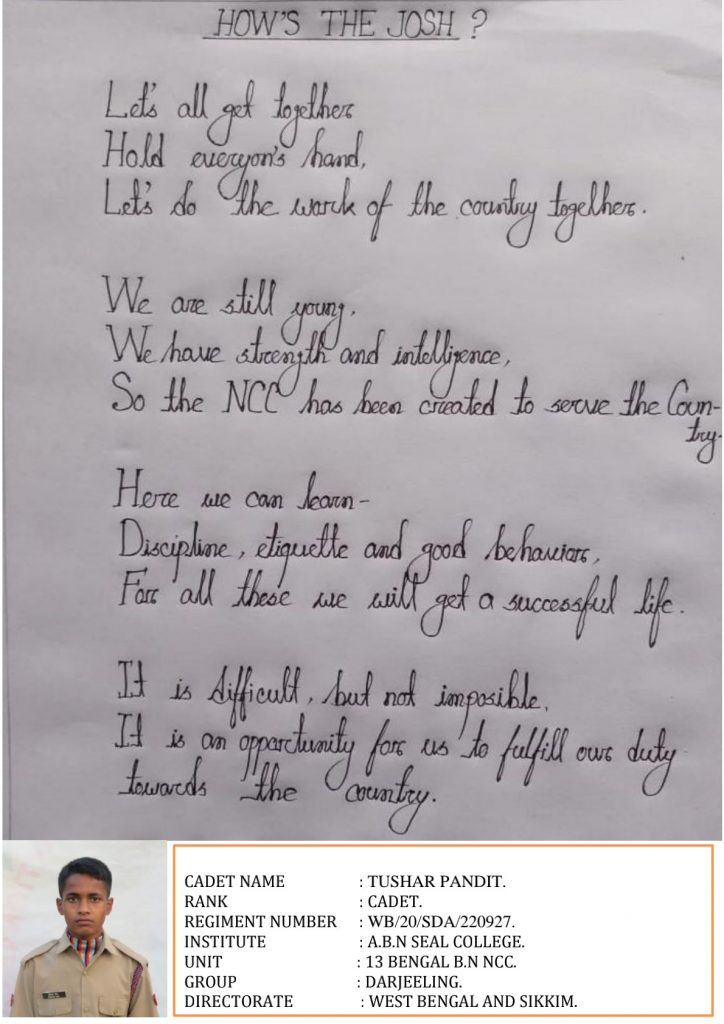 HOW'S THE JOSH ?
Let's all get together
Hold everyon's hand,
Let's do the work of the country together.
We are still young,
We have strength and intelligence,
So the NCC has been created to serve the Coun-
try.
Here we can learn-
Discipline, etiquette and good behaviors,
For all these we will get a successful life.
It is difficult, but not imposible,
It is an opportunity for us to fulfill our duty
towards the country.
CADET NAME : TUSHAR PANDIT.
RANK : CADET.
REGIMENT NUMBER : WB/20/SDA/220927.
INSTITUTE : A.B.N SEAL COLLEGE.
UNIT : 13 BENGAL B.N NCC.
GROUP : DARJEELING.
DIRECTORATE : WEST BENGAL AND SIKKIM.